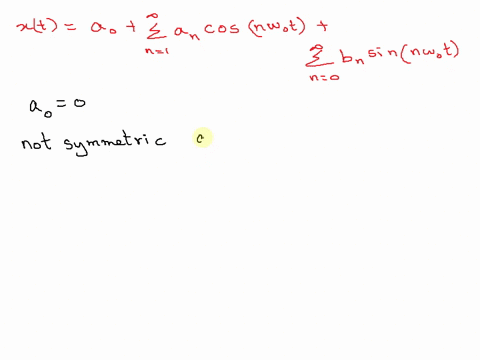 x(t) = a₀ + ∞ Σ n=1 aₙ cos (nω₀t) +
∞ Σ n=0 bₙ sin(nω₀t)
a₀ = 0
not symmetric a